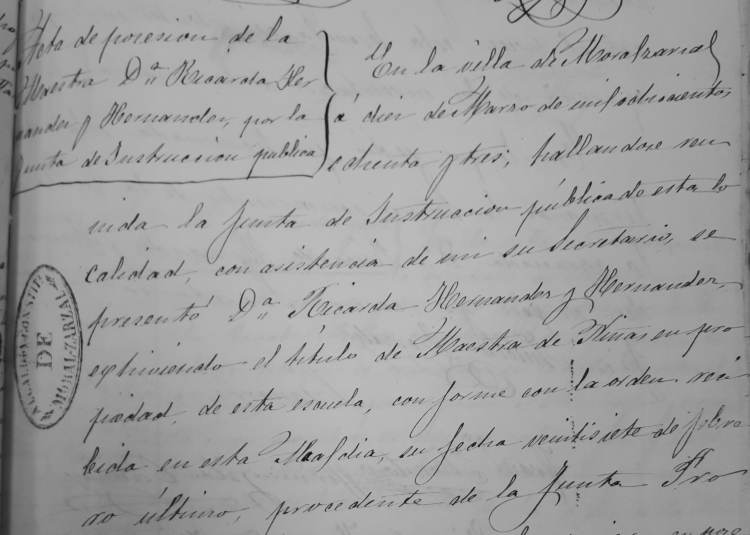 Acta de posesion de la
Maestra Dª Ricarda Her
nandez y Hernandez, por la
Junta de Instruccion publica
En la villa de Moralzarzal
á diez de Marzo de mil ochocientos
ochenta y tres, hallandose reu
nida la Junta de Instruccion pública de esta lo
calidad, con asistencia de mi su Secretario, se
presentó Dª Ricarda Hernandez y Hernandez,
exhiviendo el título de Maestra de Niñas en pro
piedad, de esta escuela, con forme con la orden reci
bida en esta Alcaldia, su fecha veintisiete de febre
ro último, procedente de la Junta Pro
ALCALDIA CONST.
DE
MORAL-ZARZAL